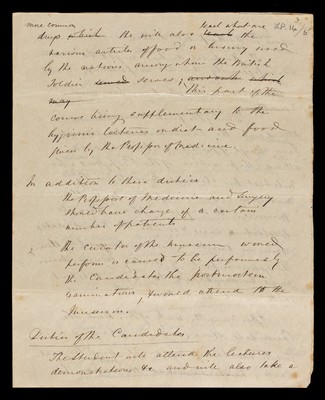 more common teach what are
drugs He will also teach the
various articles of food & luxury used
by the nations among whom the British
Soldier serves;
this part of the
course being supplementary to the
hygienic lectures on diet and food
given by the Professor of Medicine.
In addition to these duties
the Professors of Medicine and Surgery
should have charge of a certain
number of patients
the curator of the museum would
perform or cause to be performed by
the Candidates the postmortem
examinations, & would attend to the
Museum.
Duties of the Candidates
The Student will attend the lectures
demonstrations &c and will also take a